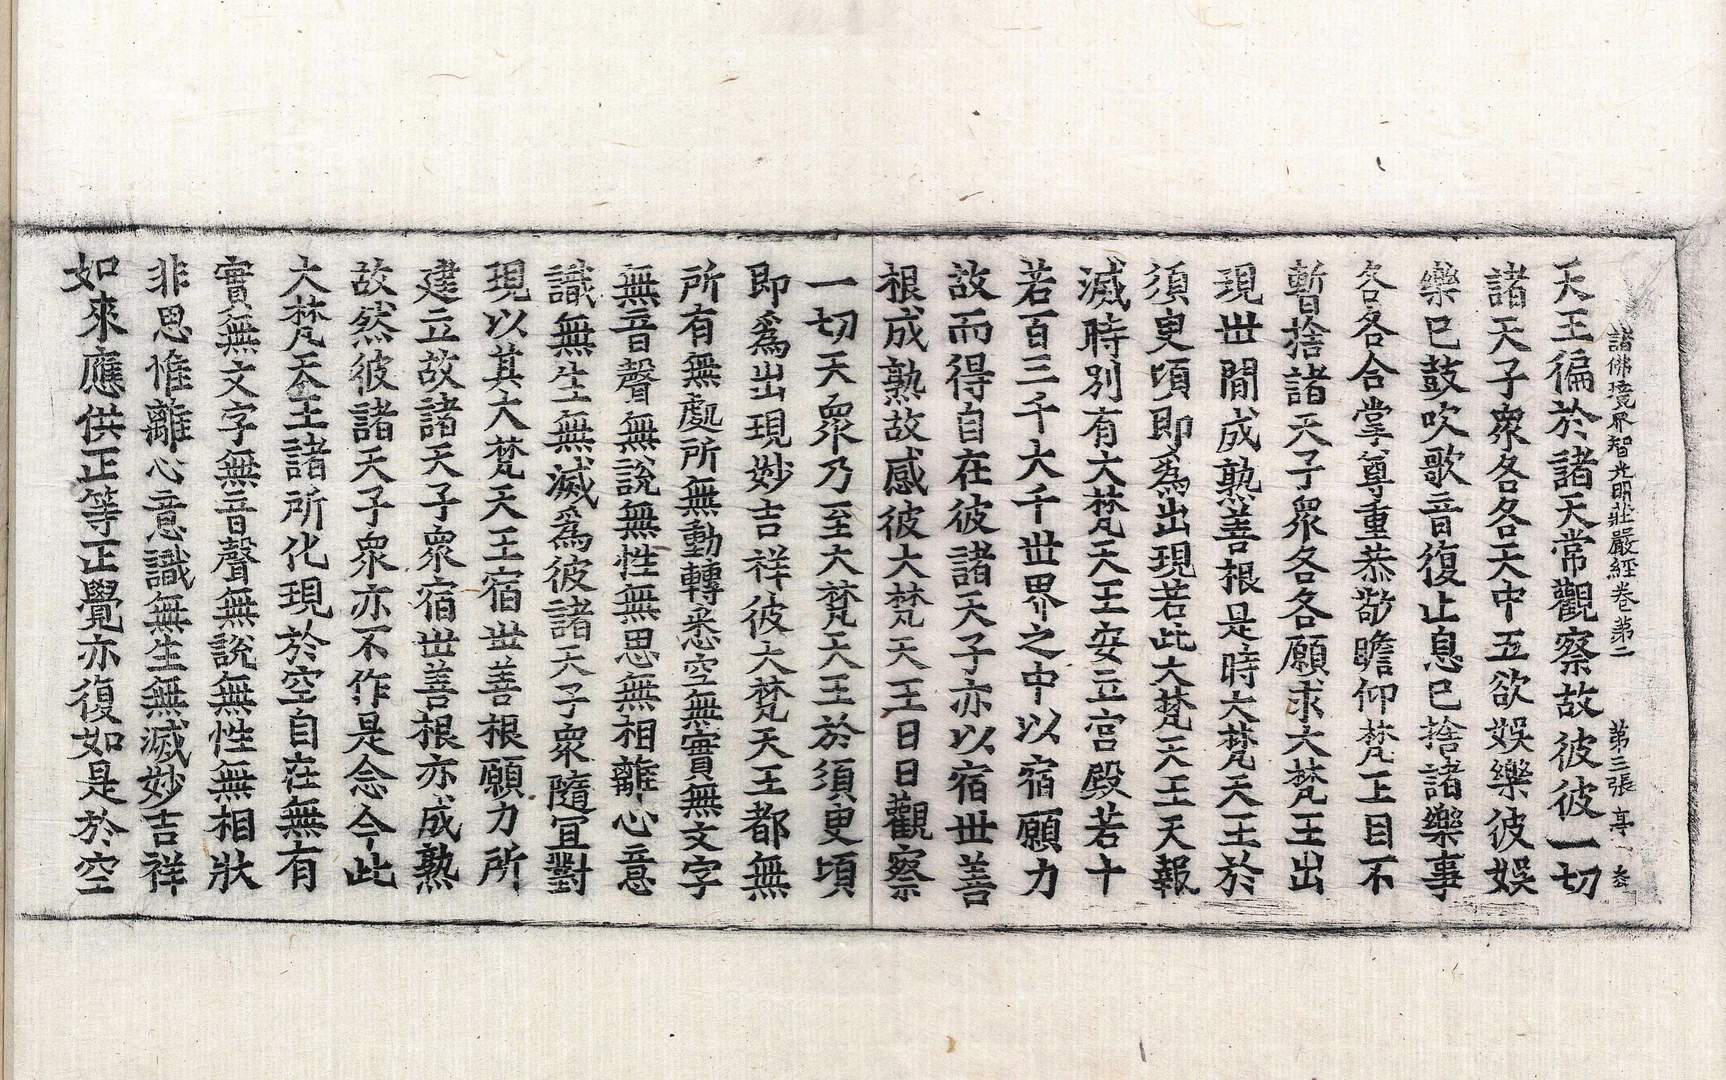 諸佛境界智光明莊嚴經卷第二 第三張 亭
天王徧於諸天常觀察故彼彼一切
諸天子衆各各天中五欲娛樂彼娛
樂已鼓吹歌音復止息已捨諸樂事
各各合掌尊重恭敬瞻仰梵王目不
暫捨諸天子衆各各願求大梵王出
現世間成熟善根是時大梵天王於
須臾頃即爲出現若此大梵天王天報
滅時別有大梵天王安立宮殿若十
若百三千大千世界之中以宿願力
故而得自在彼諸天子亦以宿世善
根成熟故感彼大梵天王日日觀察
一切天衆乃至大梵天王於須臾頃
即爲出現妙吉祥彼大梵天王都無
所有無處所無動轉悉空無實無文字
無音聲無說無性無思無相離心意
識無生無滅爲彼諸天子衆隨宜對
現以其大梵天王宿世善根願力所
建立故諸天子衆宿世善根亦成熟
故然彼諸天子衆亦不作是念今此
大梵天王諸所化現於空自在無有
實無文字無音聲無說無性無相狀
非思惟離心意識無生無滅妙吉祥
如來應供正等正覺亦復如是於空